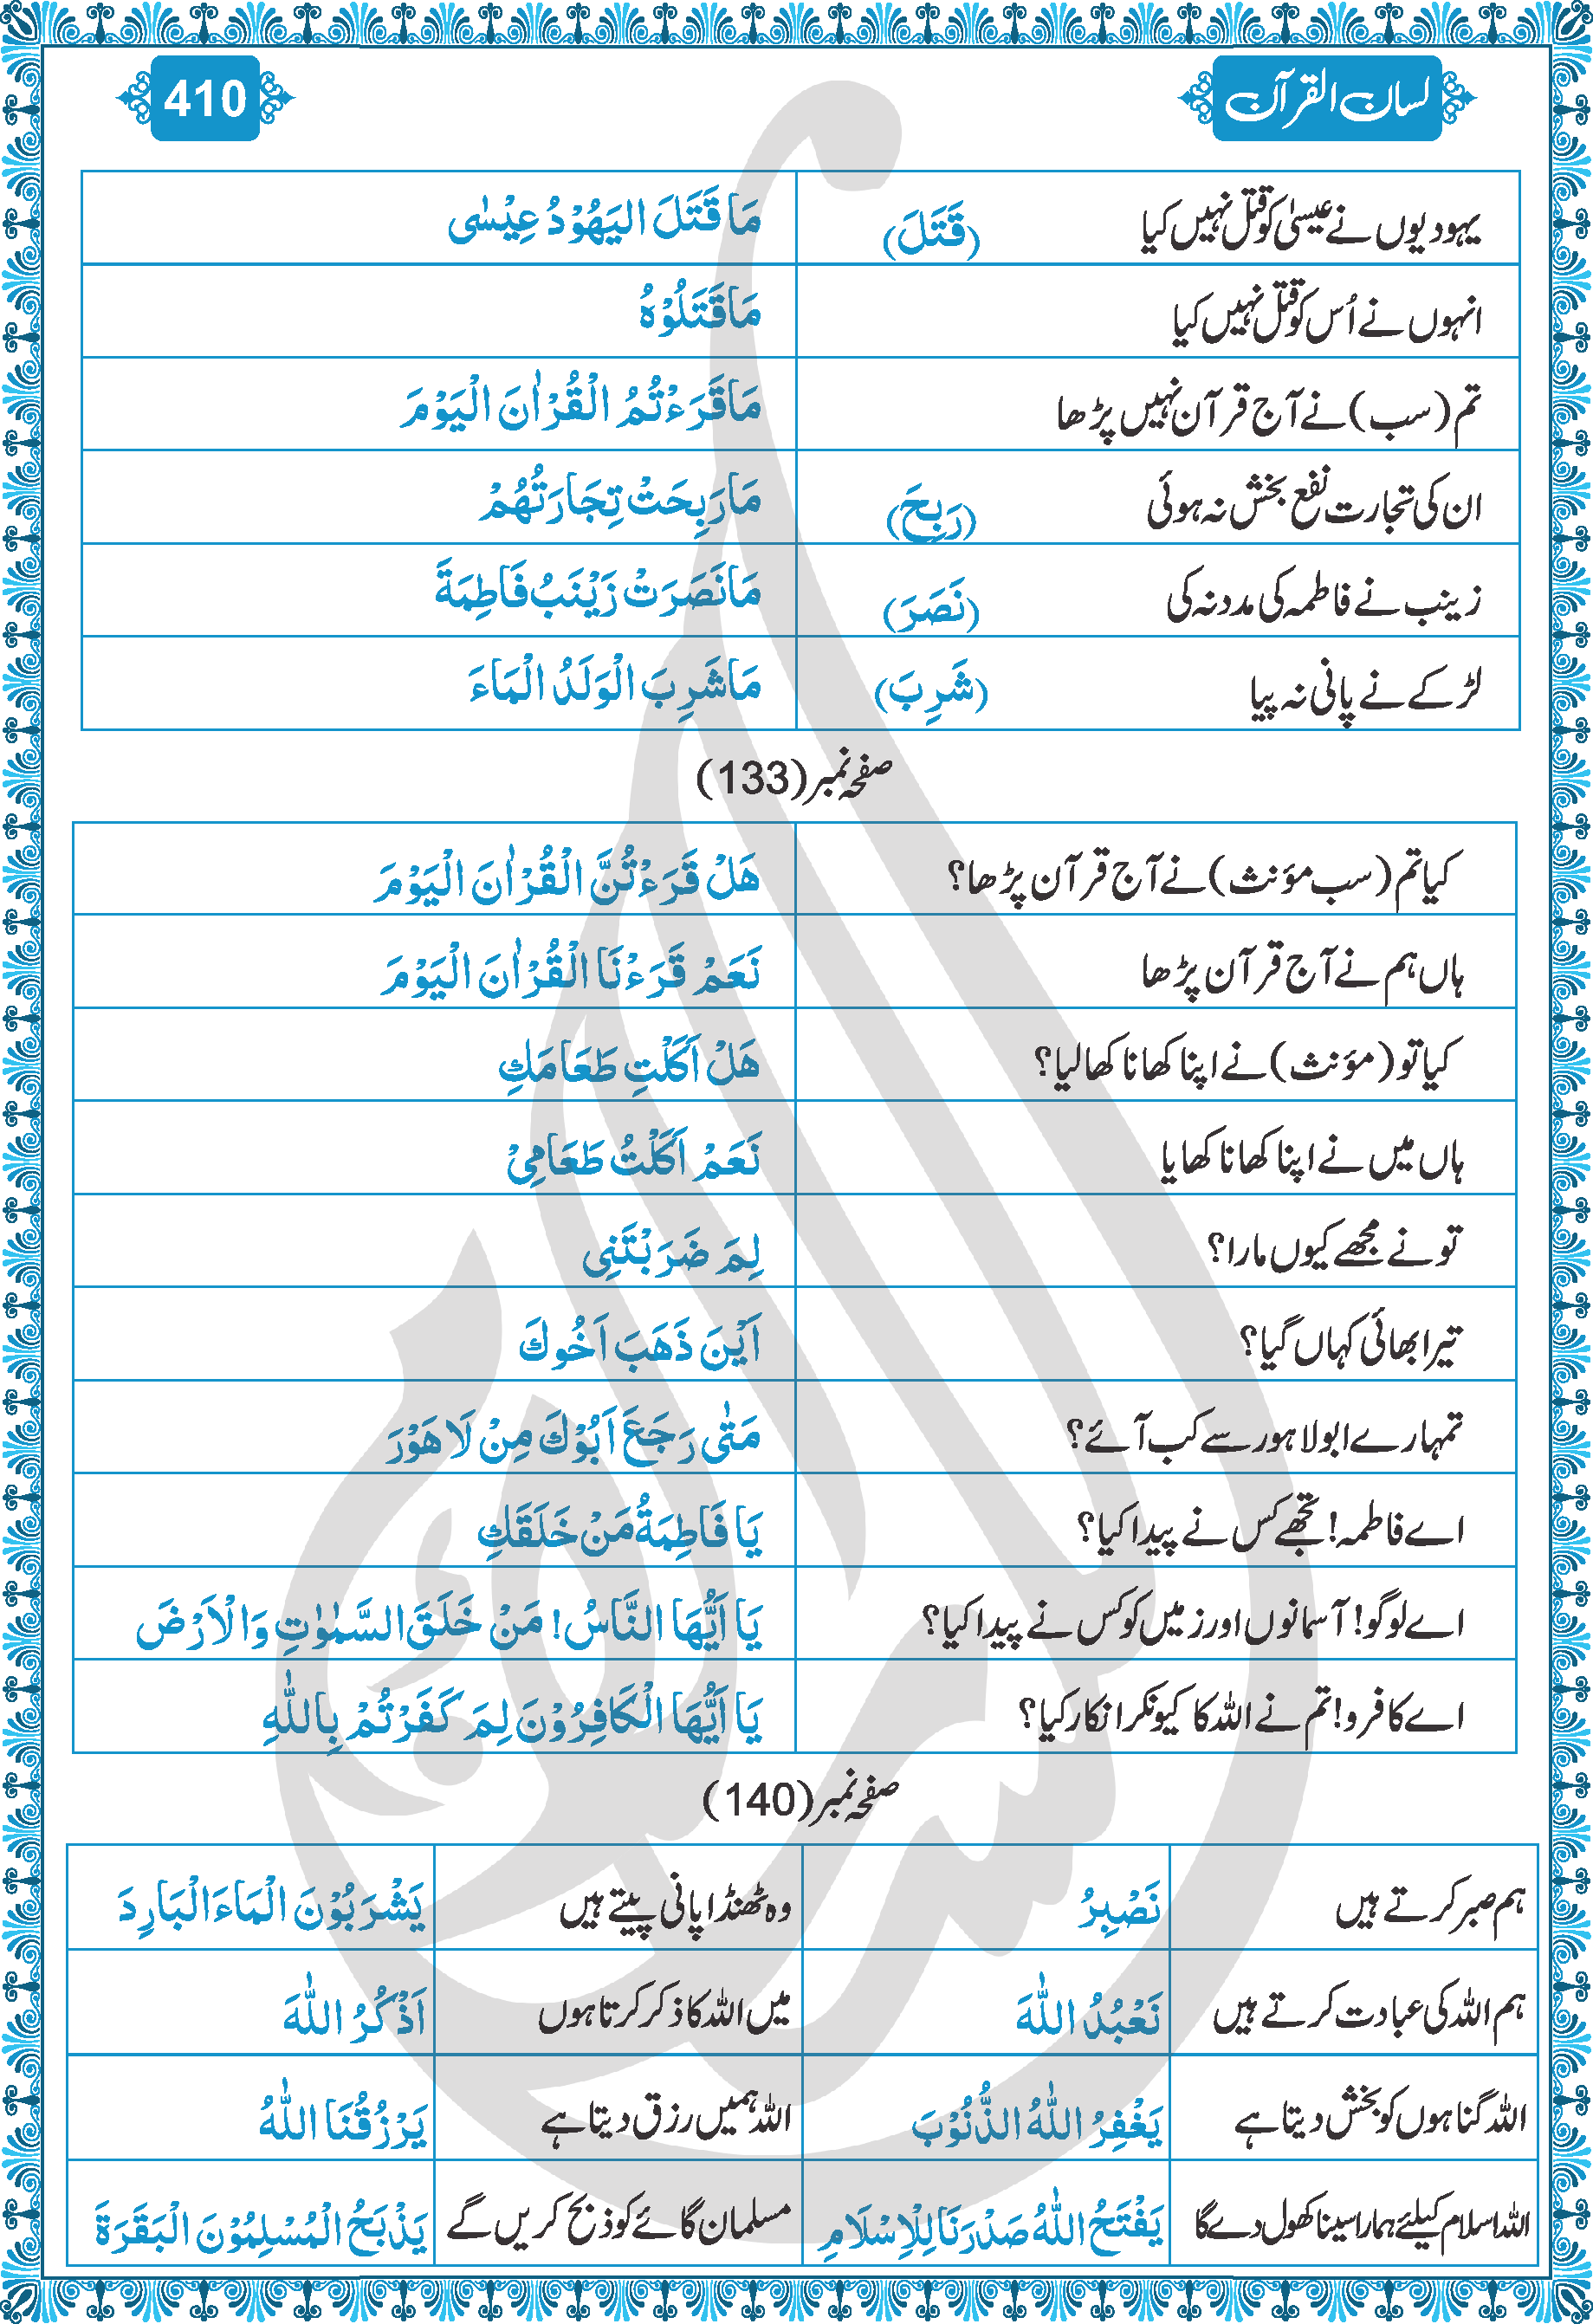 لسان القرآن
410
یہودیوں نے عیسیٰ کو قتل نہیں کیا (قَتَلَ) مَا قَتَلَ الیَھُوْدُ عِیْسٰی
انہوں نے اُس کو قتل نہیں کیا مَاقَتَلُوْہُ
تم (سب) نے آج قرآن نہیں پڑھا مَاقَرَءْتُمُ الْقُرْاٰنَ الْیَوْمَ
ان کی تجارت نفع بخش نہ ہوئی (رَبِحَ) مَارَبِحَتْ تِجَارَتُھُمْ
زینب نے فاطمہ کی مدد نہ کی (نَصَرَ) مَانَصَرَتْ زَیْنَبُ فَاطِمَةَ
لڑکے نے پانی نہ پیا (شَرِبَ) مَاشَرِبَ الْوَلَدُ الْمَاءَ
صفحہ نمبر (133)
کیا تم (سب مؤنث) نے آج قرآن پڑھا؟ هَلْ قَرَءْتُنَّ الْقُرْاٰنَ الْیَوْمَ
ہاں ہم نے آج قرآن پڑھا نَعَمْ قَرَءْنَا الْقُرْاٰنَ الْیَوْمَ
کیا تو (مؤنث) نے اپنا کھانا کھا لیا؟ هَلْ اَکَلْتِ طَعَامَكِ
ہاں میں نے اپنا کھانا کھایا نَعَمْ اَکَلْتُ طَعَامِیْ
تو نے مجھے کیوں مارا؟ لِمَ ضَرَبْتَنِی
تیرا بھائی کہاں گیا؟ اَیْنَ ذَهَبَ اَخُوكَ
تمہارے ابو لاہور سے کب آئے؟ مَتٰی رَجَعَ اَبُوْكَ مِنْ لَاهَوْرَ
اے فاطمہ! تجھے کس نے پیدا کیا؟ یَا فَاطِمَةُ مَنْ خَلَقَكِ
اے لوگو! آسمانوں اور زمیں کو کس نے پیدا کیا؟ یَا اَیُّهَا النَّاسُ! مَنْ خَلَقَ السَّمٰوٰتِ وَالْاَرْضَ
اے کافرو! تم نے اللہ کا کیونکر انکار کیا؟ یَا اَیُّهَا الْکَافِرُوْنَ لِمَ کَفَرْتُمْ بِاللّٰهِ
صفحہ نمبر (140)
ہم صبر کرتے ہیں نَصْبِرُ وہ ٹھنڈا پانی پیتے ہیں یَشْرَبُوْنَ الْمَاءَ الْبَارِدَ
ہم اللہ کی عبادت کرتے ہیں نَعْبُدُ اللّٰهَ میں اللہ کا ذکر کرتا ہوں اَذْکُرُ اللّٰهَ
اللہ گناہوں کو بخش دیتا ہے یَغْفِرُ اللّٰهُ الذُّنُوْبَ اللہ ہمیں رزق دیتا ہے یَرْزُقُنَا اللّٰهُ
اللہ اسلام کیلئے ہمارا سینا کھول دے گا یَفْتَحُ اللّٰهُ صَدْرَنَا لِلْاِسْلَامِ مسلمان گائے کو ذبح کریں گے یَذْبَحُ الْمُسْلِمُوْنَ الْبَقَرَةَ